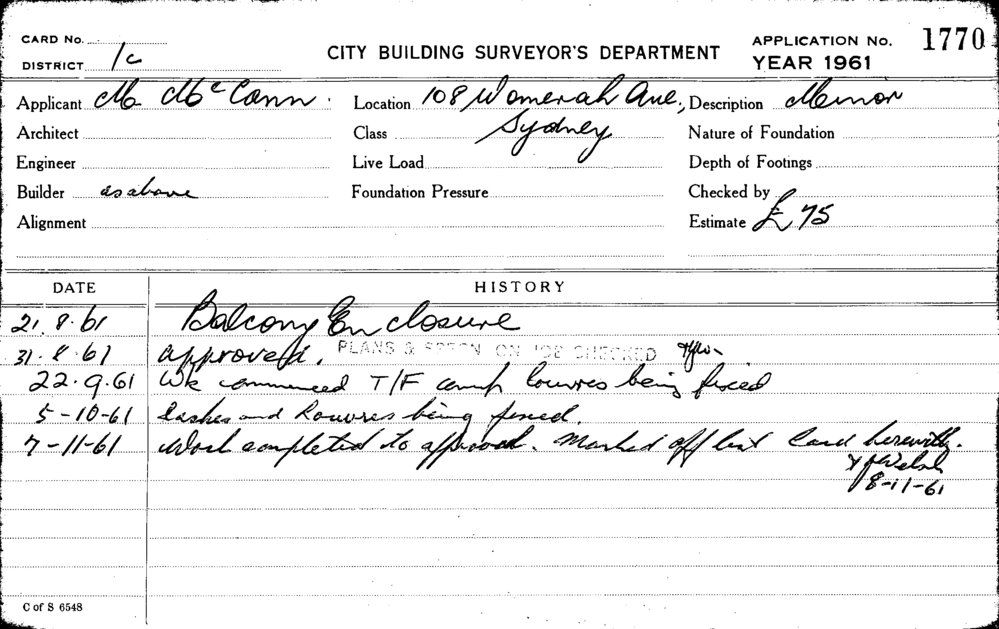 CARD No.
DISTRICT 1c
CITY BUILDING SURVEYOR'S DEPARTMENT
APPLICATION No. 1770
YEAR 1961
Applicant M McCann. Location 108 Womerah Ave, Sydney Description Minor
Architect Class Nature of Foundation
Engineer Live Load Depth of Footings
Builder as above Foundation Pressure Checked by
Alignment Estimate £75
DATE HISTORY
21.8.61 Balcony Enclosure
31.8.61 approved. PLANS & SPECN ON JOB CHECKED
22.9.61 Wk commenced T/F comp louvres being fixed
5-10-61 Sashes and Louvres being fixed.
7-11-61 Work completed to approval. Marked off list Card herewith.
Welsh
8-11-61
C of S 6548